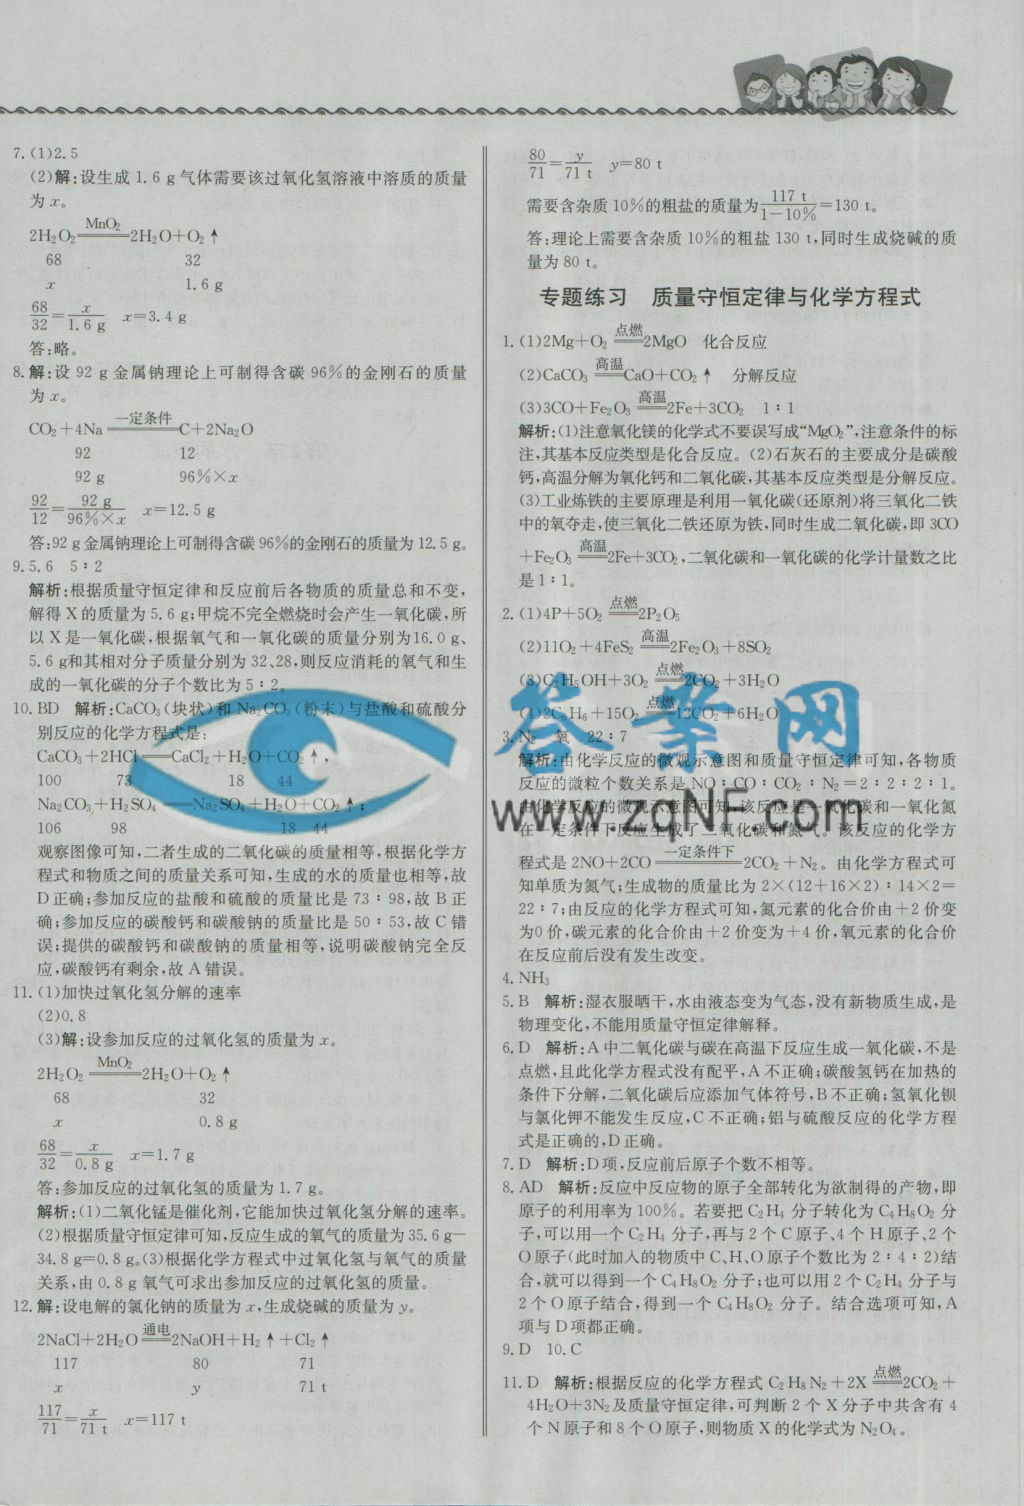 7. (1)2.5
(2)解:设生成 1.6 g气体需要该过氧化氢溶液中溶质的质量
为 x。
2H₂O₂ ══MnO₂══ 2H₂O+O₂↑
68 32
x 1.6 g
68/32 = x/1.6 g x=3.4 g
答:略。
8. 解:设 92 g 金属钠理论上可制得含碳 96%的金刚石的质量
为 x。
CO₂+4Na ══一定条件══ C+2Na₂O
92 12
92 g 96%×x
92/12 = 92 g/96%×x x=12.5 g
答:92 g金属钠理论上可制得含碳 96%的金刚石的质量为 12.5 g。
9. 5.6 5∶2
解析:根据质量守恒定律和反应前后各物质的质量总和不变,
解得 X 的质量为 5.6 g;甲烷不完全燃烧时会产生一氧化碳,所
以 X 是一氧化碳,根据氧气和一氧化碳的质量分别为16.0 g、
5.6 g和其相对分子质量分别为 32、28,则反应消耗的氧气和生
成的一氧化碳的分子个数比为 5∶2。
10. BD 解析:CaCO₃(块状)和 Na₂CO₃(粉末)与盐酸和硫酸分
别反应的化学方程式是:
CaCO₃+2HCl══CaCl₂+H₂O+CO₂↑,
100 73 18 44
Na₂CO₃+H₂SO₄══Na₂SO₄+H₂O+CO₂↑;
106 98 18 44
观察图像可知,二者生成的二氧化碳的质量相等,根据化学方
程式和物质之间的质量关系可知,生成的水的质量也相等,故
D 正确;参加反应的盐酸和硫酸的质量比是 73∶98,故 B 正
确;参加反应的碳酸钙和碳酸钠的质量比是 50∶53,故 C 错
误;提供的碳酸钙和碳酸钠的质量相等,说明碳酸钠完全反
应,碳酸钙有剩余,故 A 错误。
11. (1)加快过氧化氢分解的速率
(2)0.8
(3)解:设参加反应的过氧化氢的质量为 x。
2H₂O₂ ══MnO₂══ 2H₂O+O₂↑
68 32
x 0.8 g
68/32 = x/0.8 g x=1.7 g
答:参加反应的过氧化氢的质量为 1.7 g。
解析:(1)二氧化锰是催化剂,它能加快过氧化氢分解的速率。
(2)根据质量守恒定律可知,反应生成的氧气的质量为35.6 g-
34.8 g=0.8 g。(3)根据化学方程式中过氧化氢与氧气的质量
关系,由 0.8 g 氧气可求出参加反应的过氧化氢的质量。
12. 解:设电解的氯化钠的质量为 x,生成烧碱的质量为 y。
2NaCl+2H₂O ══通电══ 2NaOH+H₂↑+Cl₂↑
117 80 71
x y 71 t
117/71 = x/71 t x=117 t
80/71 = y/71 t y=80 t
需要含杂质 10%的粗盐的质量为 117 t/1-10% =130 t。
答:理论上需要含杂质 10%的粗盐 130 t,同时生成烧碱的质
量为 80 t。
专题练习 质量守恒定律与化学方程式
1. (1)2Mg+O₂ ══点燃══ 2MgO 化合反应
(2)CaCO₃ ══高温══ CaO+CO₂↑ 分解反应
(3)3CO+Fe₂O₃ ══高温══ 2Fe+3CO₂ 1∶1
解析:(1)注意氧化镁的化学式不要误写成“MgO₂”,注意条件的标
注,其基本反应类型是化合反应。(2)石灰石的主要成分是碳酸
钙,高温分解为氧化钙和二氧化碳,其基本反应类型是分解反应。
(3)工业炼铁的主要原理是利用一氧化碳(还原剂)将三氧化二铁
中的氧夺走,使三氧化二铁还原为铁,同时生成二氧化碳,即 3CO
+Fe₂O₃ ══高温══ 2Fe+3CO₂,二氧化碳和一氧化碳的化学计量数之比
是 1∶1。
2. (1)4P+5O₂ ══点燃══ 2P₂O₅
(2)11O₂+4FeS₂ ══高温══ 2Fe₂O₃+8SO₂
(3)C₂H₅OH+3O₂ ══点燃══ 2CO₂+3H₂O
(4)2C₆H₆+15O₂ ══点燃══ 12CO₂+6H₂O
3. N₂ 氧 22∶7
解析:由化学反应的微观示意图和质量守恒定律可知,各物质
反应的微粒个数关系是 NO∶CO∶CO₂∶N₂=2∶2∶2∶1。
由化学反应的微观示意图可知,该反应是一氧化碳和一氧化氮
在一定条件下反应生成了二氧化碳和氮气。该反应的化学方
程式是 2NO+2CO ══一定条件下══ 2CO₂+N₂。由化学方程式可
知单质为氮气;生成物的质量比为 2×(12+16×2)∶14×2=
22∶7;由反应的化学方程式可知,氮元素的化合价由+2 价变
为0 价,碳元素的化合价由+2 价变为+4 价,氧元素的化合价
在反应前后没有发生改变。
4. NH₃
5. B 解析:湿衣服晒干,水由液态变为气态,没有新物质生成,是
物理变化,不能用质量守恒定律解释。
6. D 解析:A 中二氧化碳与碳在高温下反应生成一氧化碳,不是
点燃,且此化学方程式没有配平,A 不正确;碳酸氢钙在加热的
条件下分解,二氧化碳后应添加气体符号,B 不正确;氢氧化钡
与氯化钾不能发生反应,C 不正确;铝与硫酸反应的化学方程
式是正确的,D 正确。
7. D 解析:D 项,反应前后原子个数不相等。
8. AD 解析:反应中反应物的原子全部转化为欲制得的产物,即
原子的利用率为 100%。若要把 C₂H₄ 分子转化为 C₄H₈O₂ 分
子,可以用一个 C₂H₄ 分子,再与 2 个 C 原子、4 个 H 原子、2 个
O 原子(此时加入的物质中 C、H、O 原子个数比为 2∶4∶2)结
合,就可以得到一个 C₄H₈O₂ 分子;也可以用 2 个 C₂H₄ 分子与
2 个 O 原子结合,得到一个 C₄H₈O₂ 分子。结合选项可知,A
项与 D 项都正确。
9. D 10. C
11. D 解析:根据反应的化学方程式 C₂H₈N₂+2X ══点燃══ 2CO₂+
4H₂O+3N₂及质量守恒定律,可判断 2 个 X 分子中共含有 4
个 N 原子和 8 个 O 原子,则物质 X 的化学式为 N₂O₄。
答案网
www.zqNF.com